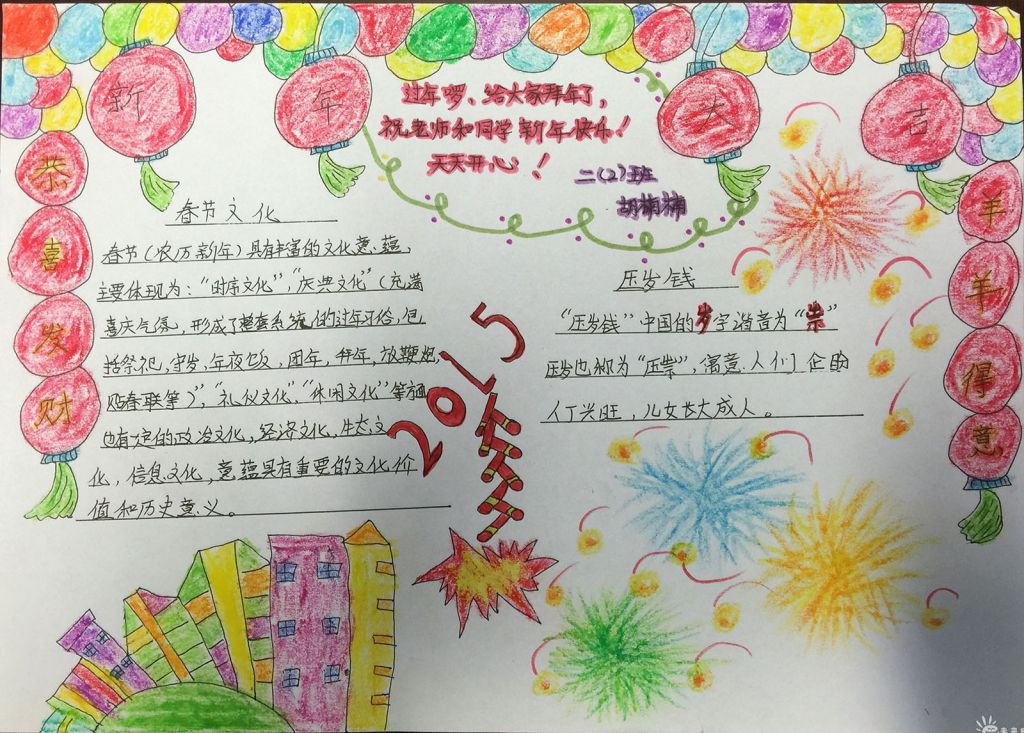 新年大吉
过年啰、给大家拜年了，
祝老师和同学新年快乐！
天天开心！
二(2)班
胡楠楠
恭喜发财
春节文化
春节（农历新年）具有丰富的文化意蕴，
主要体现为：“时序文化”，“庆典文化”（充满
喜庆气氛，形成了整套系统的过年习俗，包
括祭祀，守岁，年夜饭，团年，拜年，放鞭炮，
贴春联等），“礼仪文化”，“休闲文化”等方面
也有一定的政治文化，经济文化，生态文
化，信息文化，意蕴具有重要的文化价
值和历史意义。
2015
压岁钱
“压岁钱”中国的岁字谐音为“祟”
压岁也称为“压祟”，寓意人们企盼
人丁兴旺，儿女长大成人。
羊羊得意